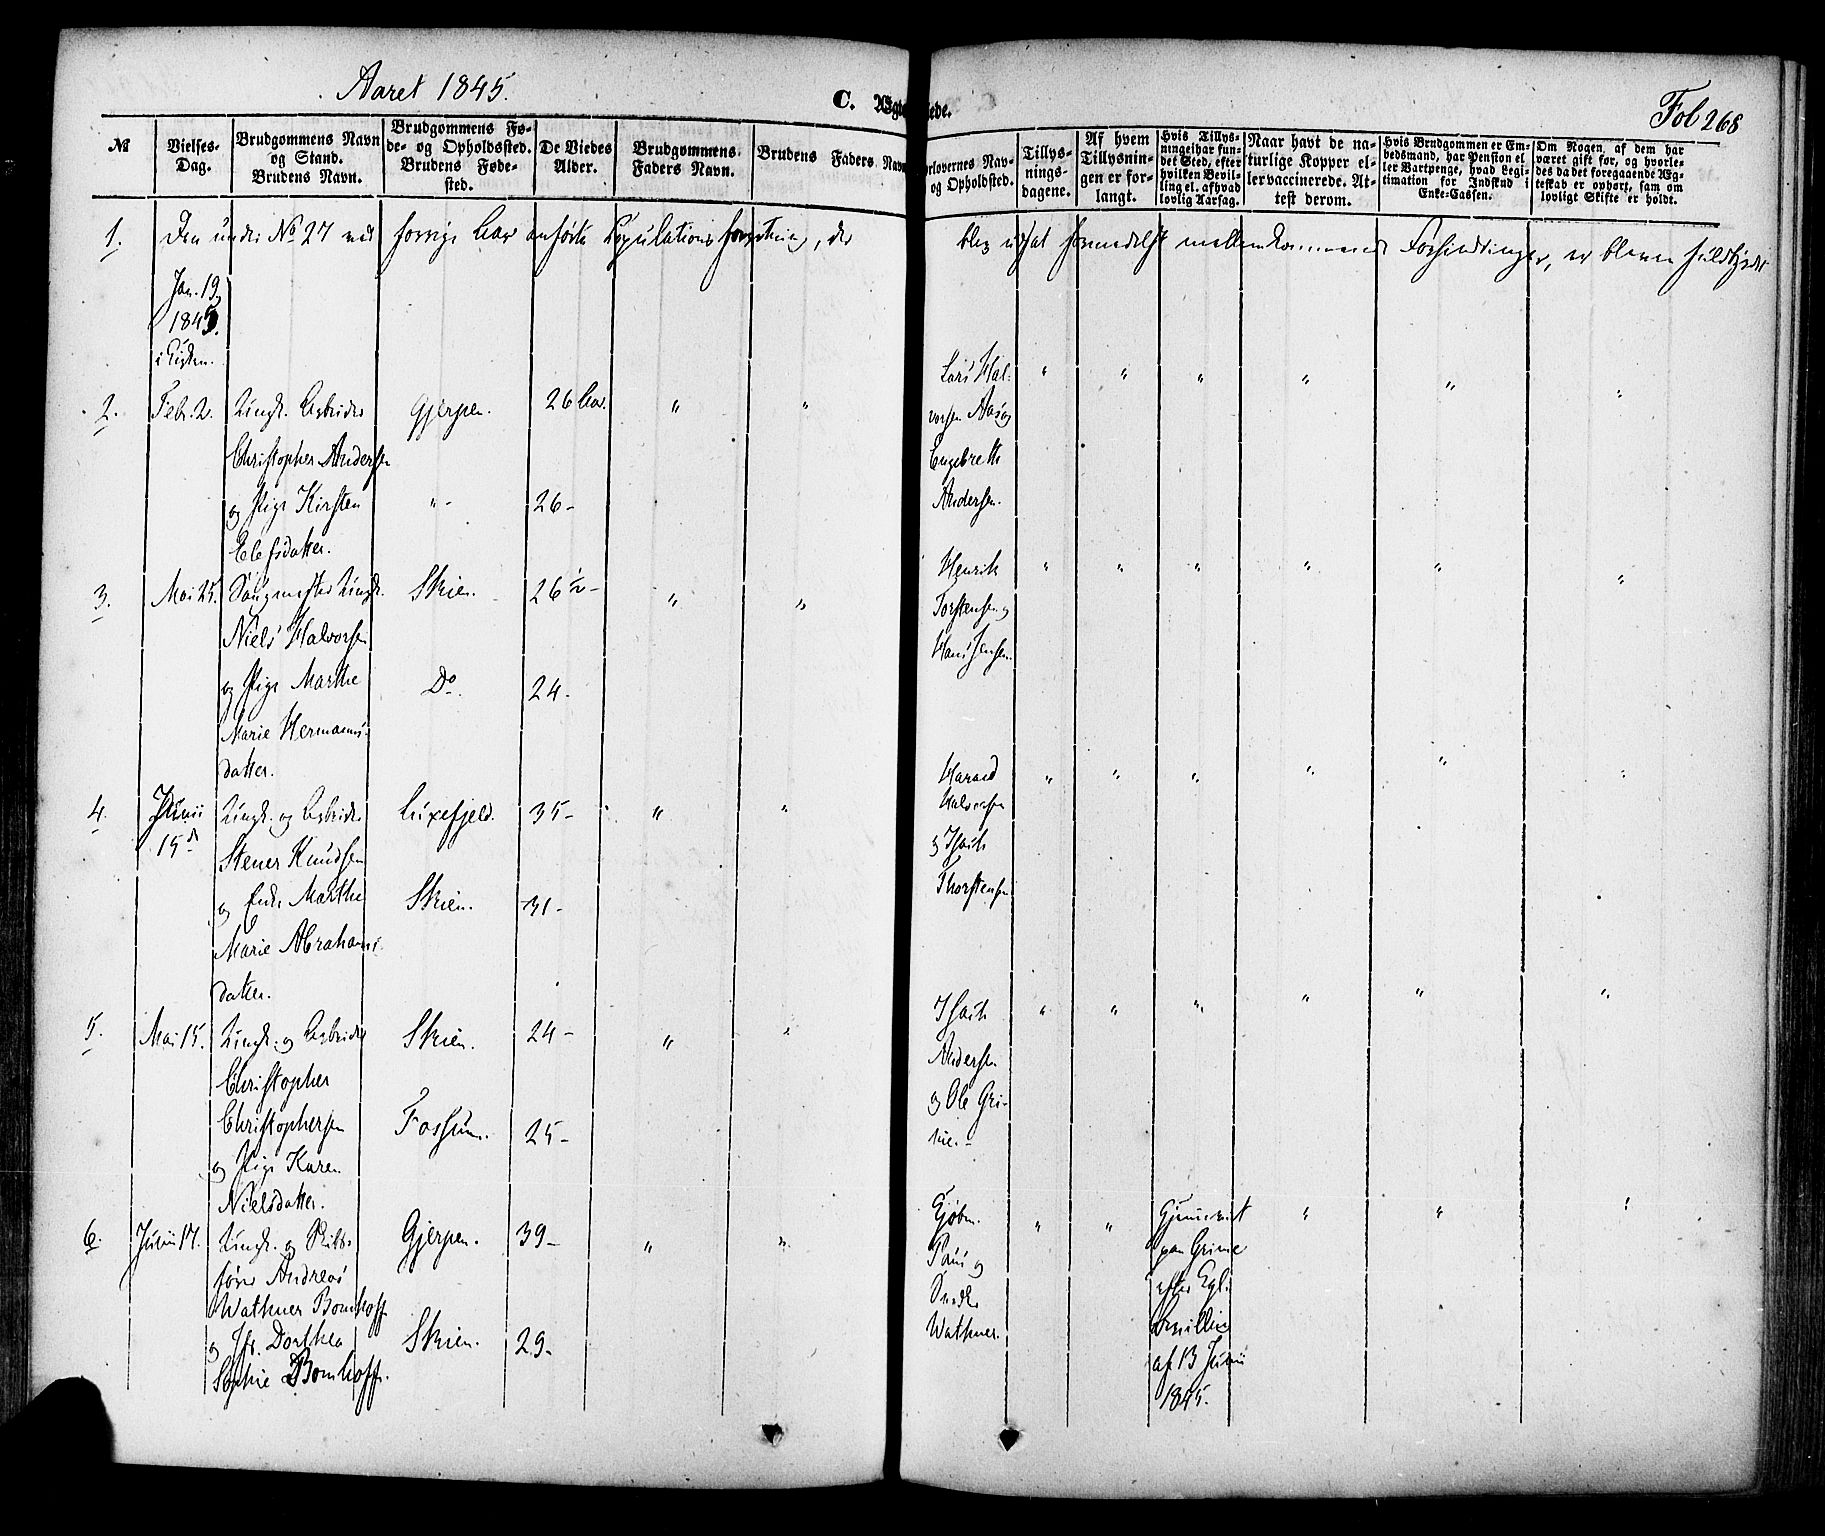 Aaret 1845.
C. Ægte
iede.
Fol 268
No
Vielses-
Dag.
Brudgommens Navn
og Stand.
Brudens Navn.
Brudgommens Fø-
de- og Opholdsted.
Brudens Føde-
sted.
De Viedes
Alder.
Brudgommens
Faders Navn.
Brudens Faders Navn
orlovernes Nav-
og Opholdsted.
Tillys-
nings-
dagene.
Af hvem
Tillysnin-
gen er for-
langt.
Hvis Tillys-
ningei har fun-
det Sted, efter
hvilken Bevil-
ling el. af hvad
lovlig Aarsag.
Naar havt de na-
turlige Kopper el-
ler vaccinerede. At-
test derom.
Hvis Brudgommen er Em-
bedsmand, har Pension el-
ler Vartpenge, hvad Legi-
timation for Indskud i
Enke-Cassen.
Om Nogen, af dem har
været gift før, og hvorle-
des da det foregaaende Æg-
teskab er ophørt, sam om
lovligt Skifte er holdt.
1.
Den under No 27 ved forrige Aar anførte Copulations forretning, der
blev udsat formedelst mellemkommende Forhindringer, er bleven fuldbyrdet
Jan. 19
1845.
i Kirken.
2.
Febr. 2.
Ungk. Arbeider
Christopher Andersen
og Pige Kirsten
Elefsdatter.
Gjerpen.
"-
26 Aar.
26-
"
"
Lars Hal-
vorsen Aas og
Engebreth
Andersen.
" " " " " "
3.
Mai 25.
Ungk.
Niels Halvorsen
og Pige Marthe
Marie Hermanns-
datter.
Skien.
Do
26 ½-
24.
"
"
Henrik
Torstensen og
Hans Jensen.
" " " " " "
4.
Junii
15d
Ungk. og Arbeider
Stener Knudsen
og Enke Marthe
Marie Abrahams-
datter.
Luxefjeld.
Skien.
35-
31-
"
"
Harald
Halvorsen
og Isach
Thorstensen
" " " " " "
5.
Mai 15.
Ungk. og Arbeider
Christopher
Christophersen
og Pige Karen
Nielsdatter.
Skien.
Fossum.
24-
25-
"
"
Isach
Andersen
og Ole Gri-
nie.-
" " " " " "
6.
Junii 17.
Ungk. og Skibs-
fører Andreas
Wathner Bomhoff
og Jfr. Dorthea
Sophie Bomhoff.
Gjerpen.
Skien.
39-
29-
"
"
og
Wathner.
" "
paa Grinie
efter Kgl.
Bevilling
af 13 Junii
1845.
" " "